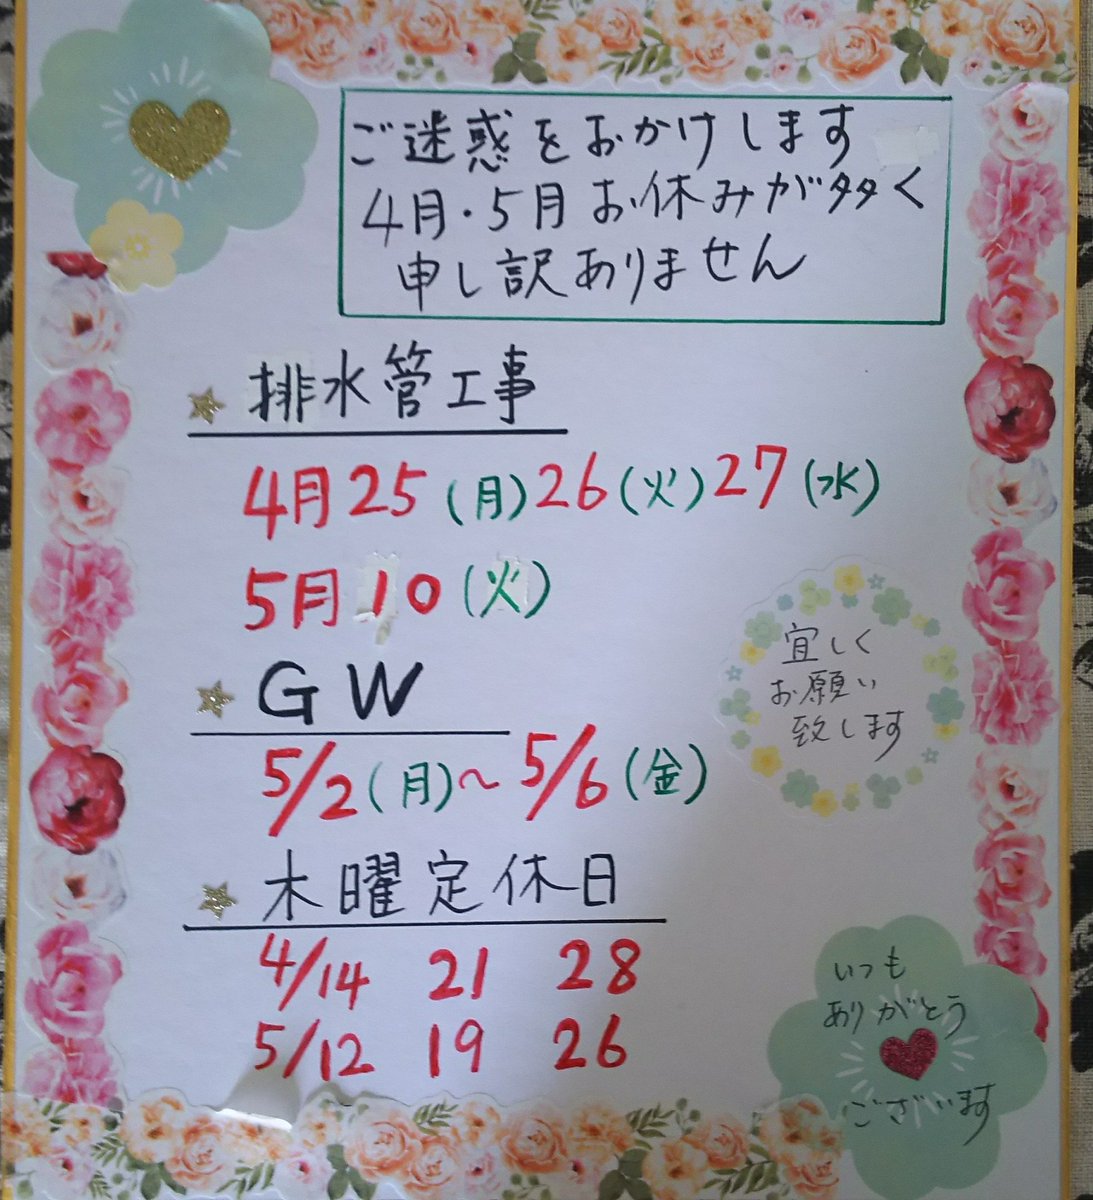 ご迷惑をおかけします
4月・5月お休みが多く
申し訳ありません
排水管工事
4月25(月)26(火)27(水)
5月10(火)
GW
5/2(月)~5/6(金)
宜しく
お願い
致します
木曜定休日
4/14 21 28
5/12 19 26
いつも
ありがとう
ございます